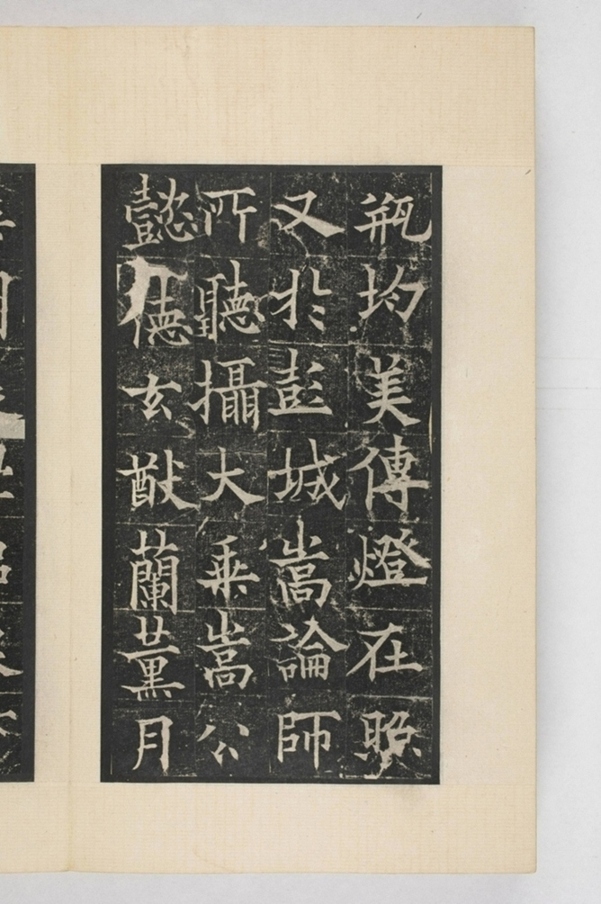 瓶均美傳燈在照
又於彭城嵩論師
所聽攝大乘嵩公
懿德玄猷蘭薰月